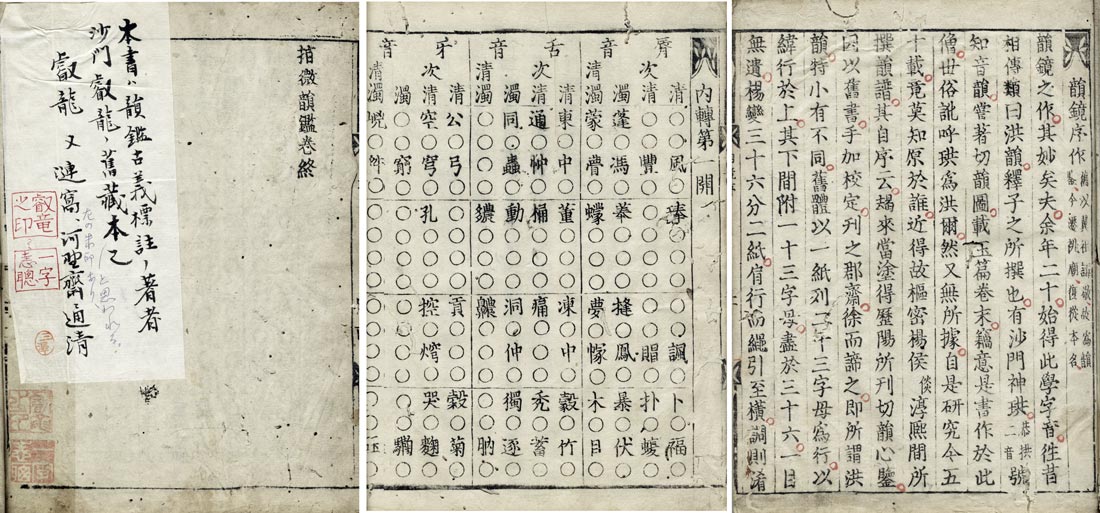 韻鏡序作 舊以翼祖諱敬故為韻鑑今遷祧廟復從本名
韻鏡之作其妙矣夫余年二十始得此學字音徃昔
相傳類曰洪韻釋子之所撰也有沙門神珙 恭拱二音 號
知音韻甞著切韻圖載玉篇卷末竊意是書作於此
僧世俗訛呼珙爲洪爾然又無所據自是研究今五
十載竟莫知原於誰近得故樞密楊侯 倓 淳熈間所
撰韻譜其自序云朅來當塗得歷陽所刊切韻心鑒
因以舊書手加校定刊之郡齋徐而諦之即所謂洪
韻特小有不同舊體以一紙列二十三字母爲行以
緯行於上其下間附一十三字母盡於三十六一目
無遺楊變三十六分二紙肩行而繩引至橫調則淆
內轉第一開
脣音
清○○風○琫○○○○○諷○卜○福○
次清○○豐○○○○○○○賵○扑○蝮○
濁蓬○馮○菶○○○㷯○鳳○暴○伏○
清濁蒙○瞢○蠓○○○夢○懜○木○目○
舌音
清東○中○董○○○凍○中○縠○竹○
次清通○忡○桶○○○痛○○○禿○蓄○
濁同○蟲○動○○○洞○仲○獨○逐○
清濁○○○○繷○○○齈○○○○○肭○
牙音
清公○弓○○○○○貢○○○穀○菊○
次清空○穹○孔○○○控○焪○哭○麴○
濁○○窮○○○○○○○○○○○駶○
清濁
捃微韻鑑卷終
本書ハ韻鑑古義標註ノ著者
沙門叡龍ノ舊藏本也
叡龍 又 連窩、河野齋通清
叡竜之印
一字志聰